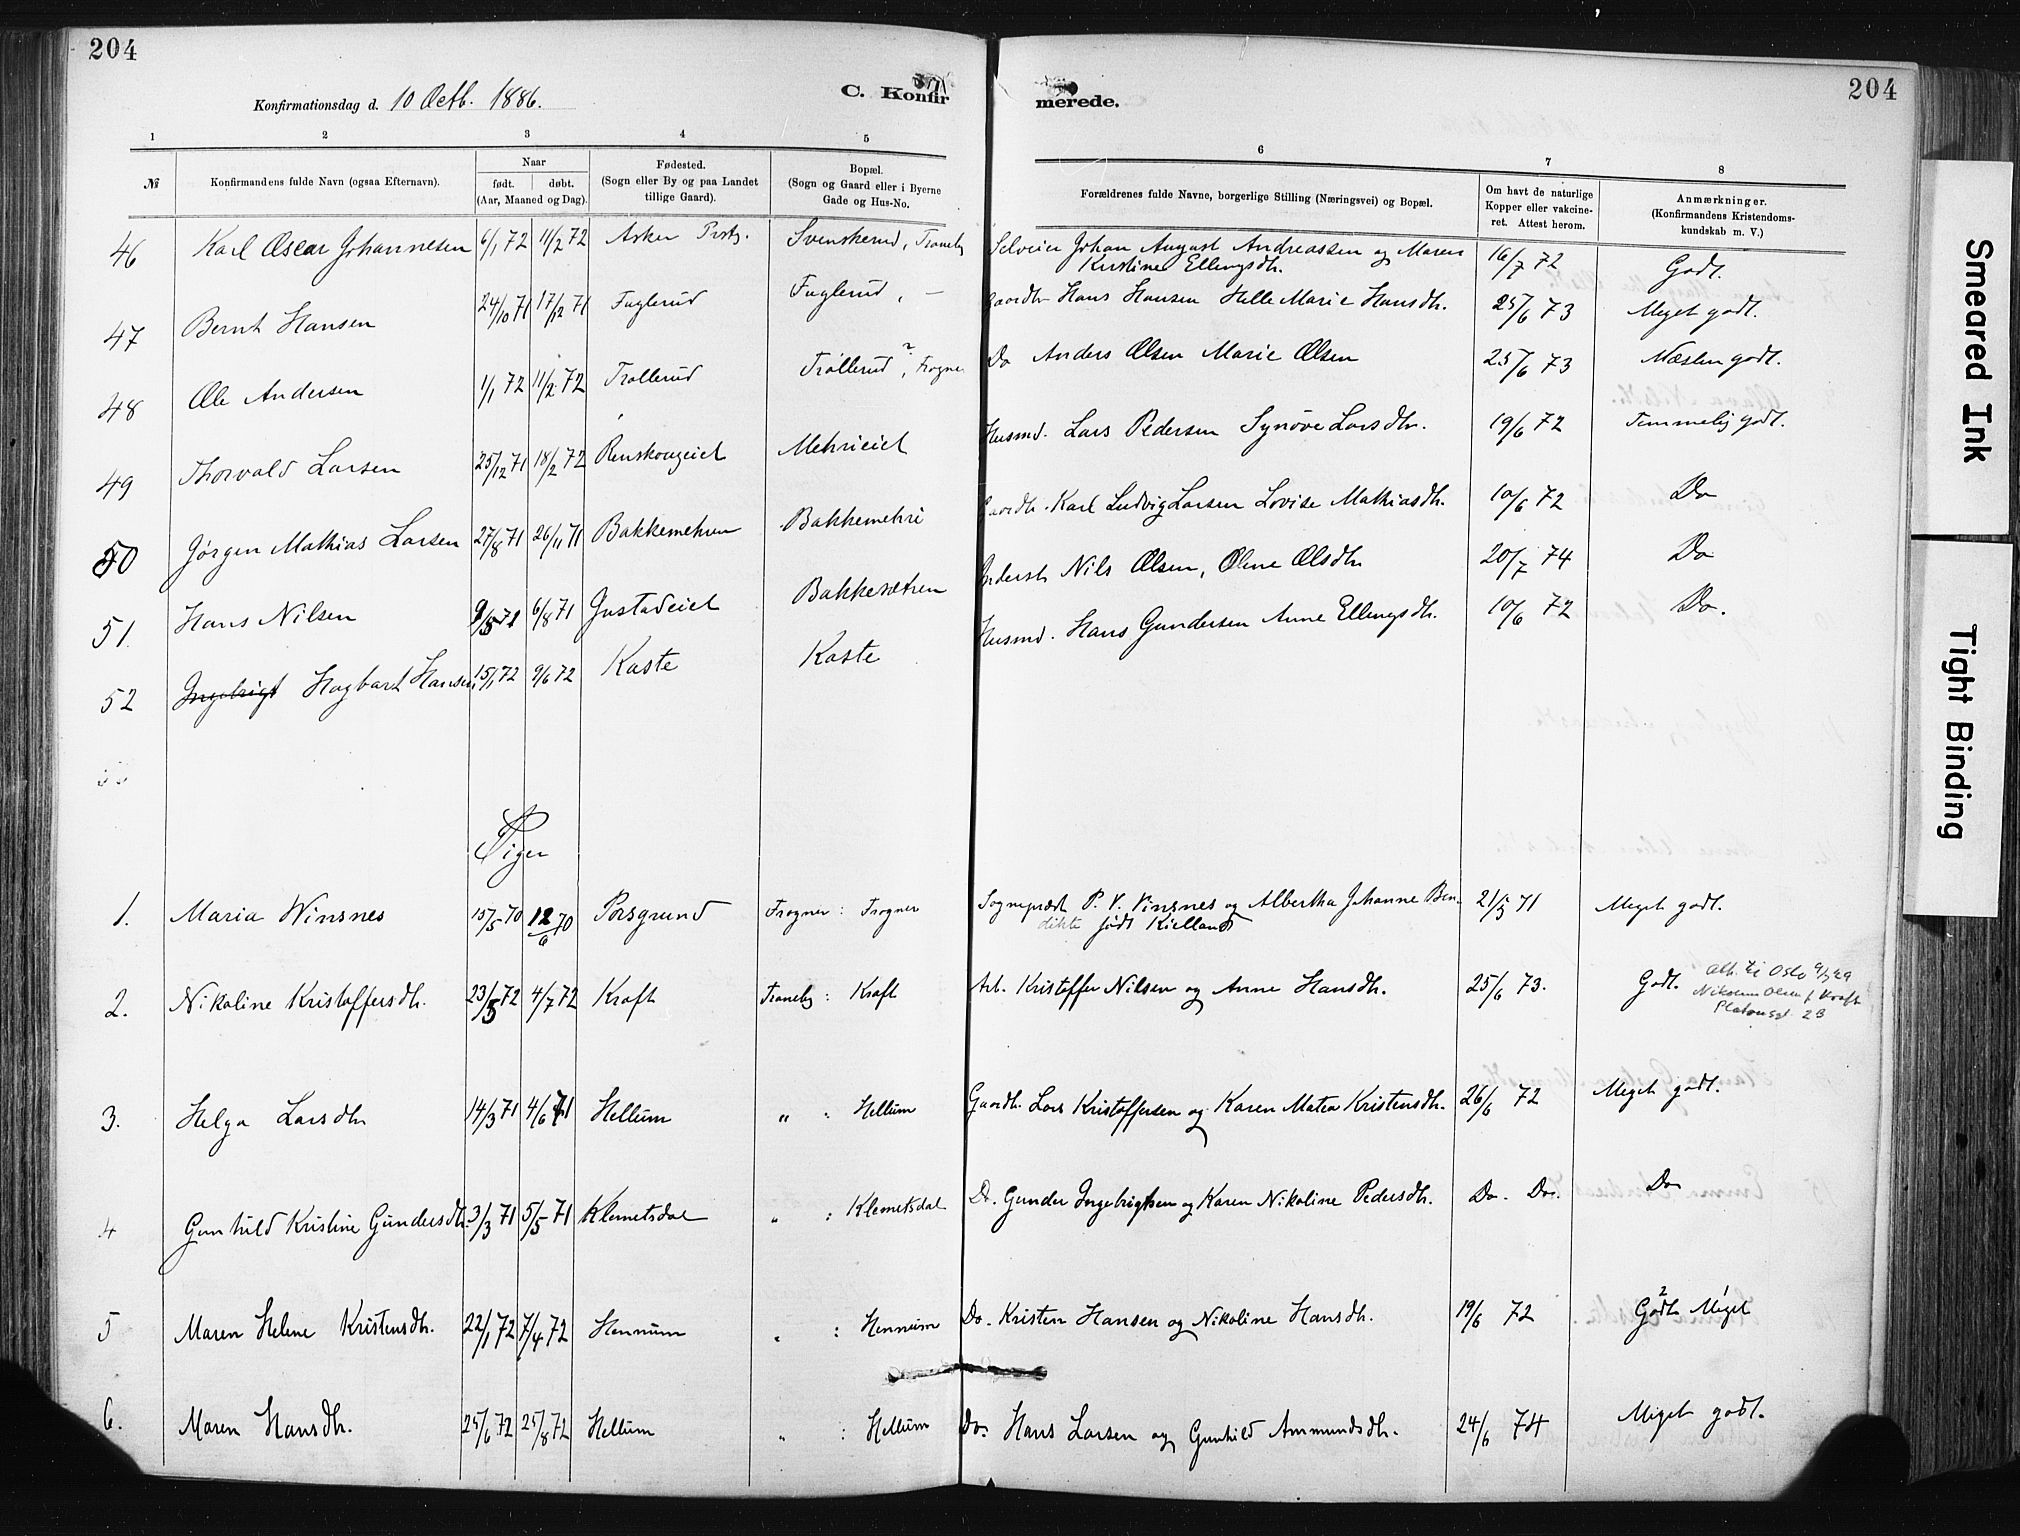 204
Konfirmationsdag d. 10 Octb. 1886.
C. Konfir
merede.
204
1 2 3 4 5 6 7 8
№
Konfirmandens fulde Navn (ogsaa Efternavn).
Naar
født. døbt.
(Aar, Maaned og Dag).
Fødested.
(Sogn eller By og paa Landet
tillige Gaard).
Bopæl.
(Sogn og Gaard eller i Byerne
Gade og Hus-No.
Forældrenes fulde Navne, borgerlige Stilling (Næringsvei) og Bopæl.
Om havt de naturlige
Kopper eller vakcine-
ret. Attest herom.
Anmærkninger.
(Konfirmandens Kristendoms-
kundskab m. V.)
46 Karl Oscar Johannesen 6/1 72 11/2 72 Asker Prstg. Svenskerud, Traneby Selveier Johan August Andreassen og Maren 16/7 72 Godt.
Kristine Ellingsdtr.
47 Bernt Hansen 24/10 71 17/12 71 Fuglerud Fuglerud, — Gaardbr Hans Hansen Helle Marie Hansdtr. 25/6 73 Meget godt.
48 Ole Andersen 1/1 72 11/2 72 Trollerud Trollerud, Frogner Do Anders Olsen Marie Olsen 25/6 73 Næsten godt.
49 Thorvald Larsen 25/12 71 18/2 72 Renskougeiet Mehrieiet Husmd. Lars Pedersen Synøve Larsdtr. 19/6 72 Temmelig godt.
50 Jørgen Mathias Larsen 27/8 71 26/11 71 Bakkemehren Bakkemehri Gaardbr. Karl Ludvig Larsen Lovise Mathiasdtr. 10/6 72 Do
51. Hans Nilsen 9/5 71 6/8 71 Gustadeiet Bakkesætren Inderst Nils Olsen, Oline Olsdtr 20/7 74 Do
52 Ingebrigt Hagbart Hansen 15/1 72 9/6 72 Kaste Kaste Husmd. Hans Gundersen Anne Ellingsdtr. 10/6 72 Do.
Piger
1. Maria Winsnes 15/5 70 12/6 70 Porsgrund Frogner: Frogner Sognepræst P. V. Vinsnes og Albertha Johanne Ben- 21/3 71 Meget godt.
dikte født Kielland
2. Nikoline Kristoffersdtr. 23/5 72 4/7 72 Kraft Traneby: Kraft Arb. Kristoffer Nilsen og Anne Hansdtr. 25/6 73. Godt. att. til Oslo 9/3 29
Nikoline Olsen f Kraft
Platousgt. 23
3. Helga Larsdtr 14/3 71 4/6 71 Hellum " : Hellum Gaardbr. Lars Kristoffersen og Karen Matea Kristensdtr. 26/6 72 Meget godt.
4 Gunhild Kristine Gundersdtr. 3/3 71 5/5 71 Klemetsdal " : Klemetsdal Do. Gunder Ingebrigtsen og Karen Nikoline Pedersdtr. Do. Do. Do
5 Maren Helene Kristensdtr. 22/1 72 7/4 72 Hennum " : Hennum Do. Kristen Hansen og Nikoline Hansdtr. 19/6 72 Godt Meget
6. Maren Hansdtr. 25/6 72 25/8 72 Hellum " : Hellum Do. Hans Larsen og Gunhild Ammundsdtr. 24/6 74 Meget godt.
Smeared Ink
Tight Binding